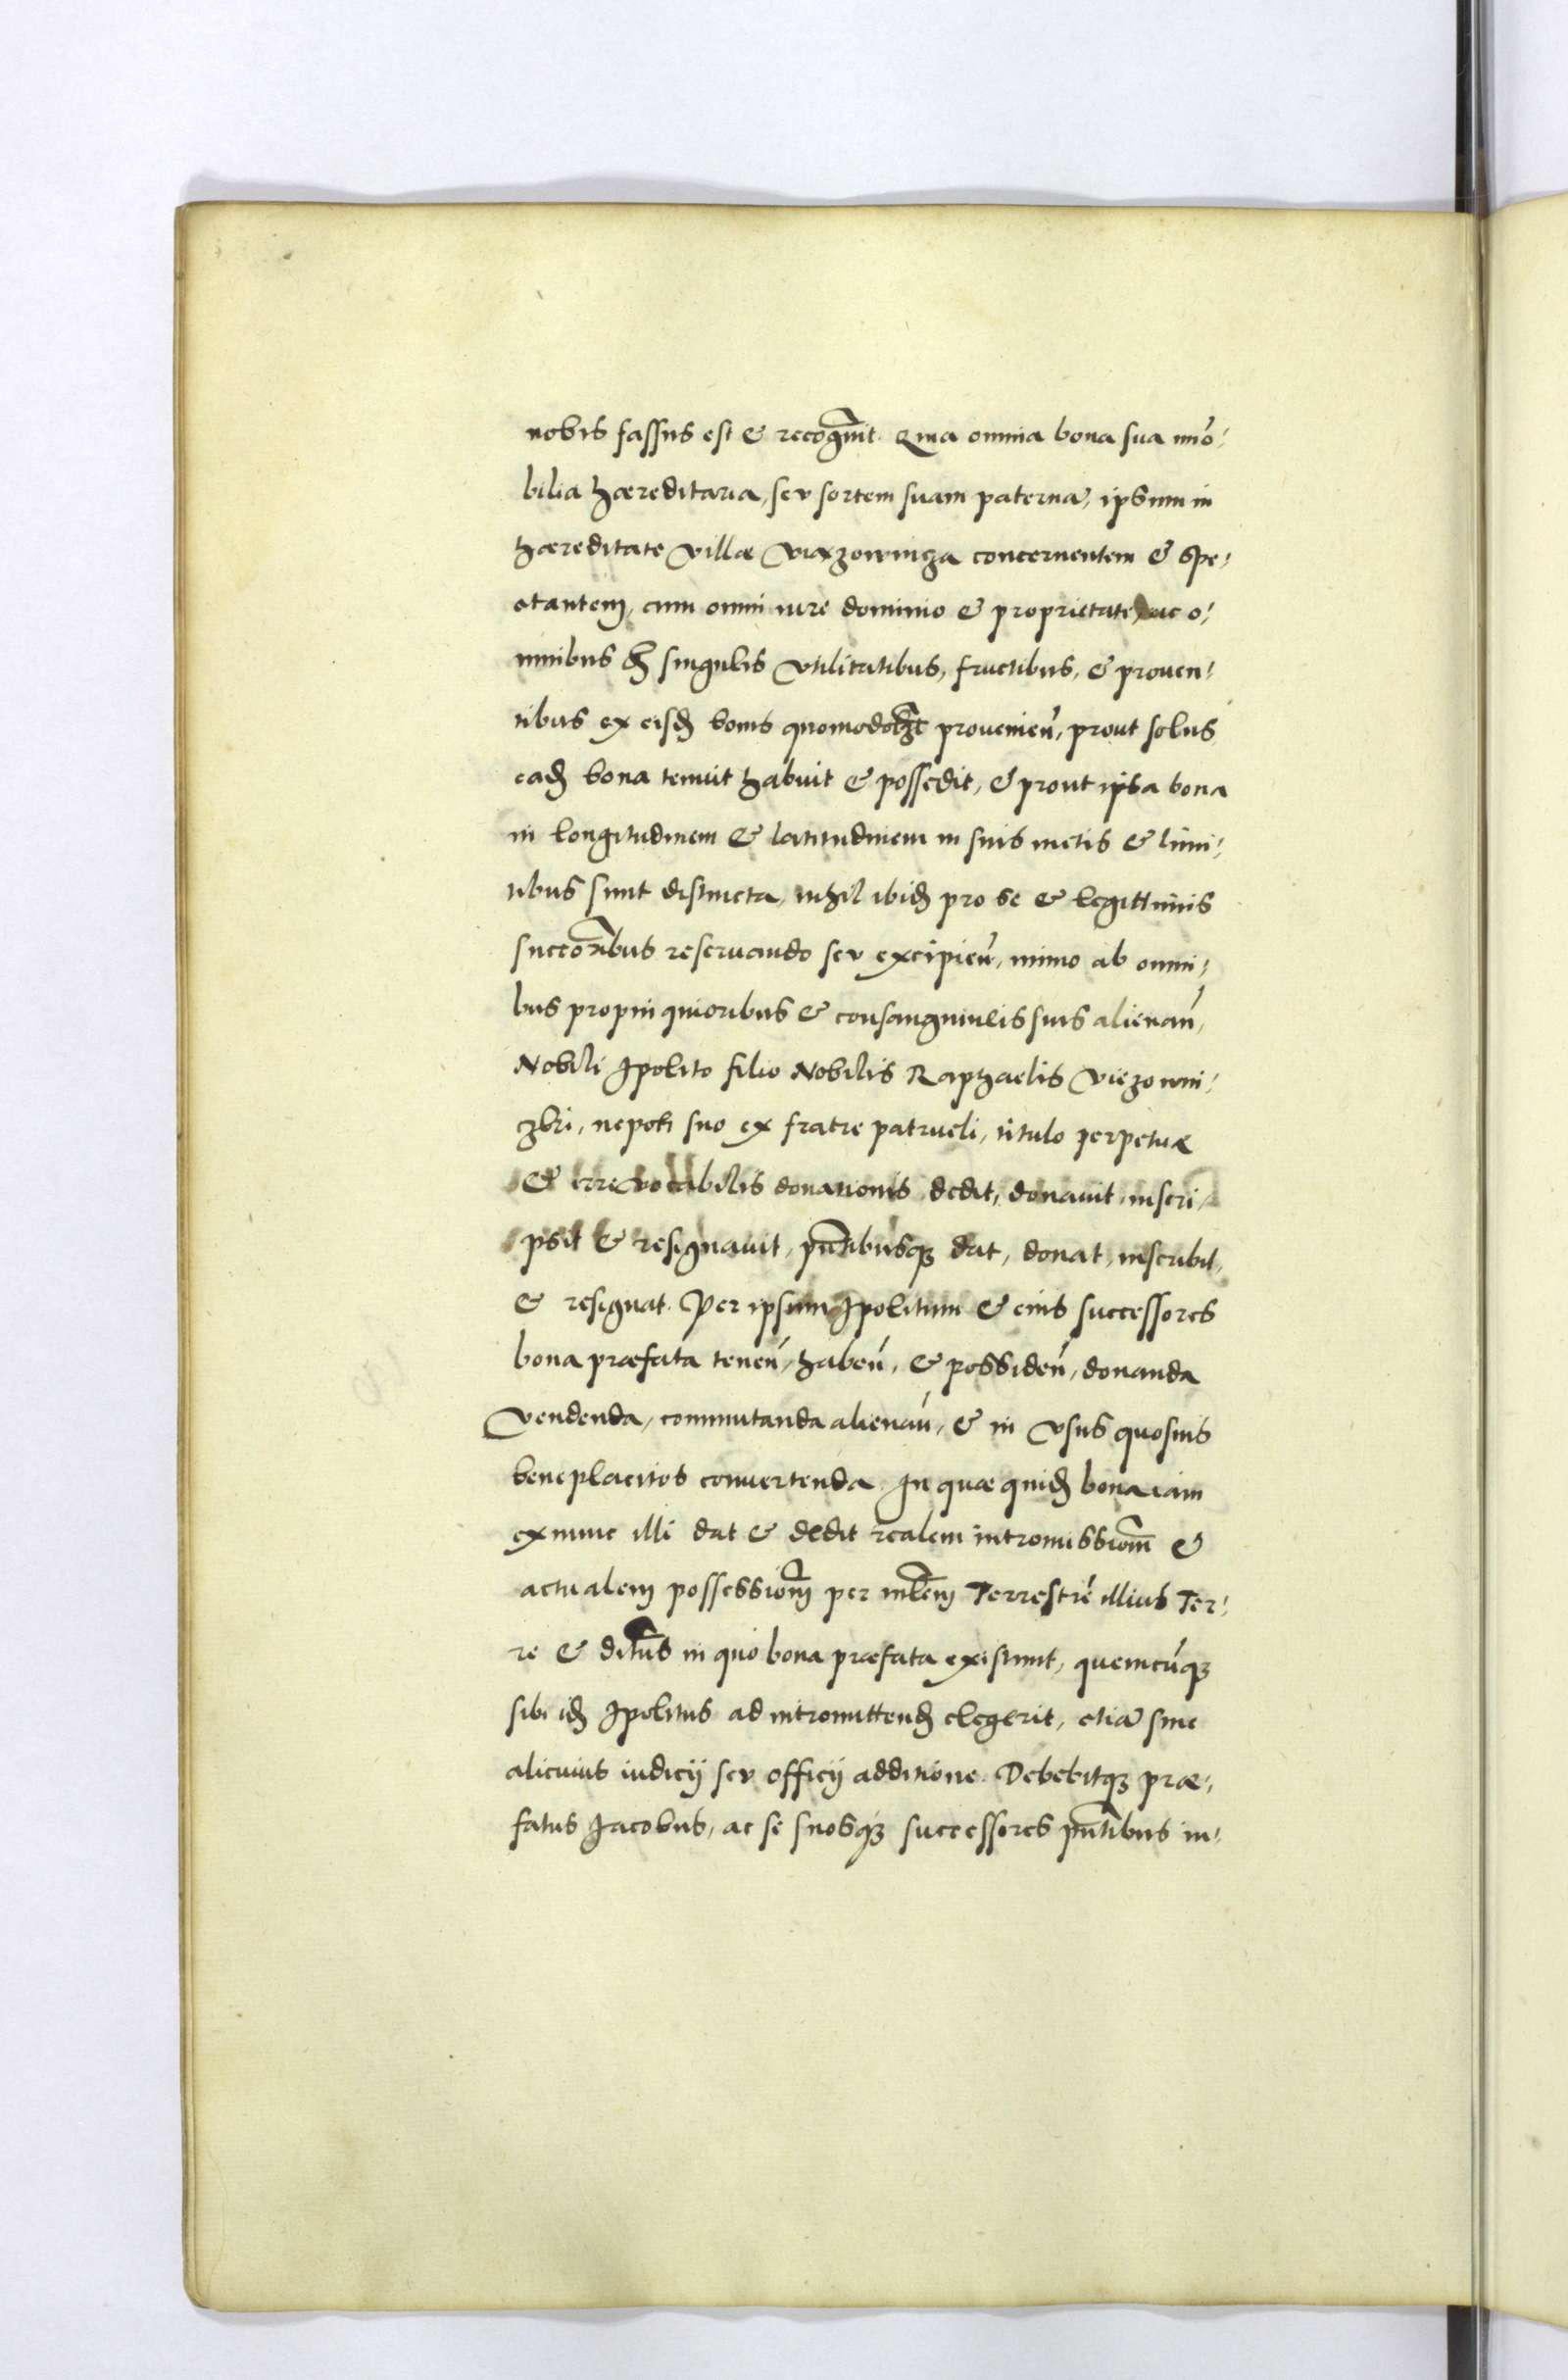 nobis fassus est & recogn̄uit. Quia omnia bona sua im̄o⸗
bilia hæreditaria, seu sortem suam paternā, ipsum in
hæreditate villæ Viazownicza concernentem & spe⸗
ctantem, cum omni iure dominio & proprietate, ac o⸗
mnibus et singulis vtilitatibus, fructibus, & prouen⸗
tibus ex eisd̄ bonis quomodolꝫt prouenień, prout solus
ead̄ bona tenuit habuit & possedit, & prout ipsa bona
in longitudinem & latitudinem in suis metis & limi⸗
tibus sunt distincta, nihil ibid̄ pro se & legittimis
succōribus reseruando seu excipień, immo ab omni⸗
bus propinquioribus & consanguineis suis alienań,
Nobili Ipolito filio Nobilis Raphaelis Viezowni⸗
czki, nepoti suo ex fratre patrueli, titulo perpetuæ
& irreuocabilis donationis dedit, donauit, inscri⸗
psit & resignauit, pn̄tibusqꝫ dat, donat, inscribit,
& resignat. Per ipsum Ipolitum & eius successores
bona præfata teneń, habeń, & possideń, donanda
vendenda, commutanda alienań, & in vsus quosuis
beneplacitos conuertenda. In quæ quid̄ bona iam
exnunc illi dat & dedit realem intromissiōm &
actualem possessiōm per mīlem Terrestrē illius Ter⸗
re & dītus in quo bona præfata existunt, quemcūqꝫ
sibi id̄ Ipolitus ad intromittend̄ elegerit, etiā sine
alicuius iudicij seu officij additione. Debebitqꝫ præ⸗
fatus Iacobus, ac se suosqꝫ successores pn̄tibus in⸗